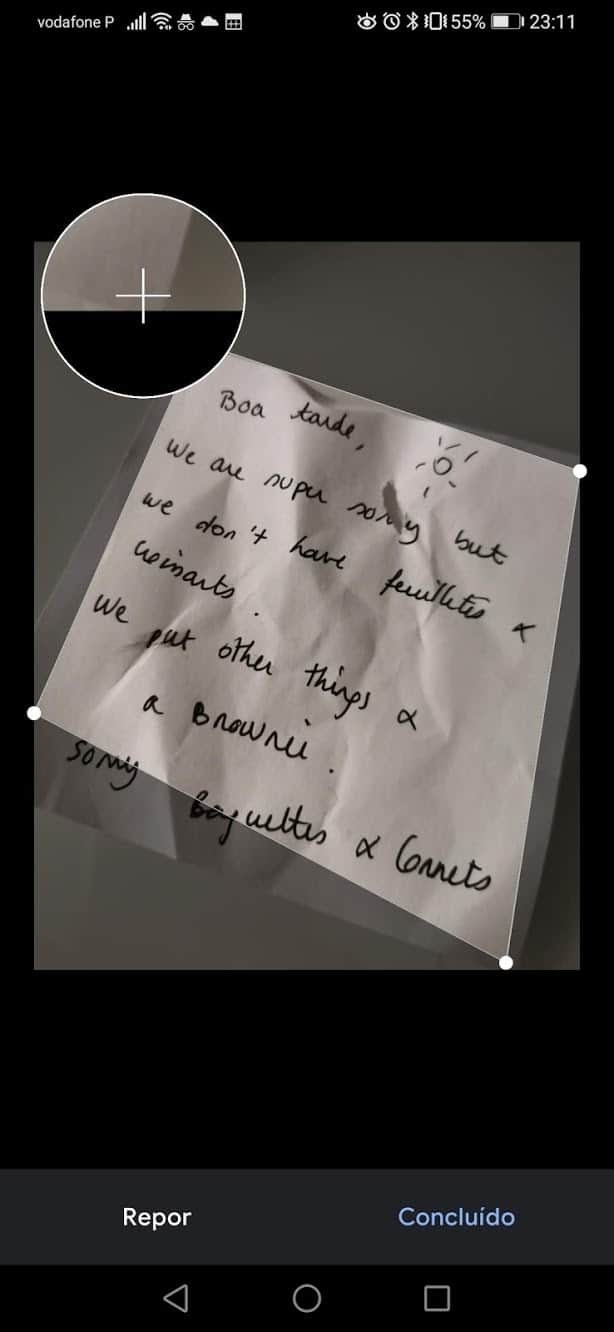 vodafone P 55% 23:11
Boa tarde,
We are super sorry but
we don't have feuilletés &
croissants.
We put other things &
a Brownie.
Sorry Baguettes & Cornets
Repor Concluído